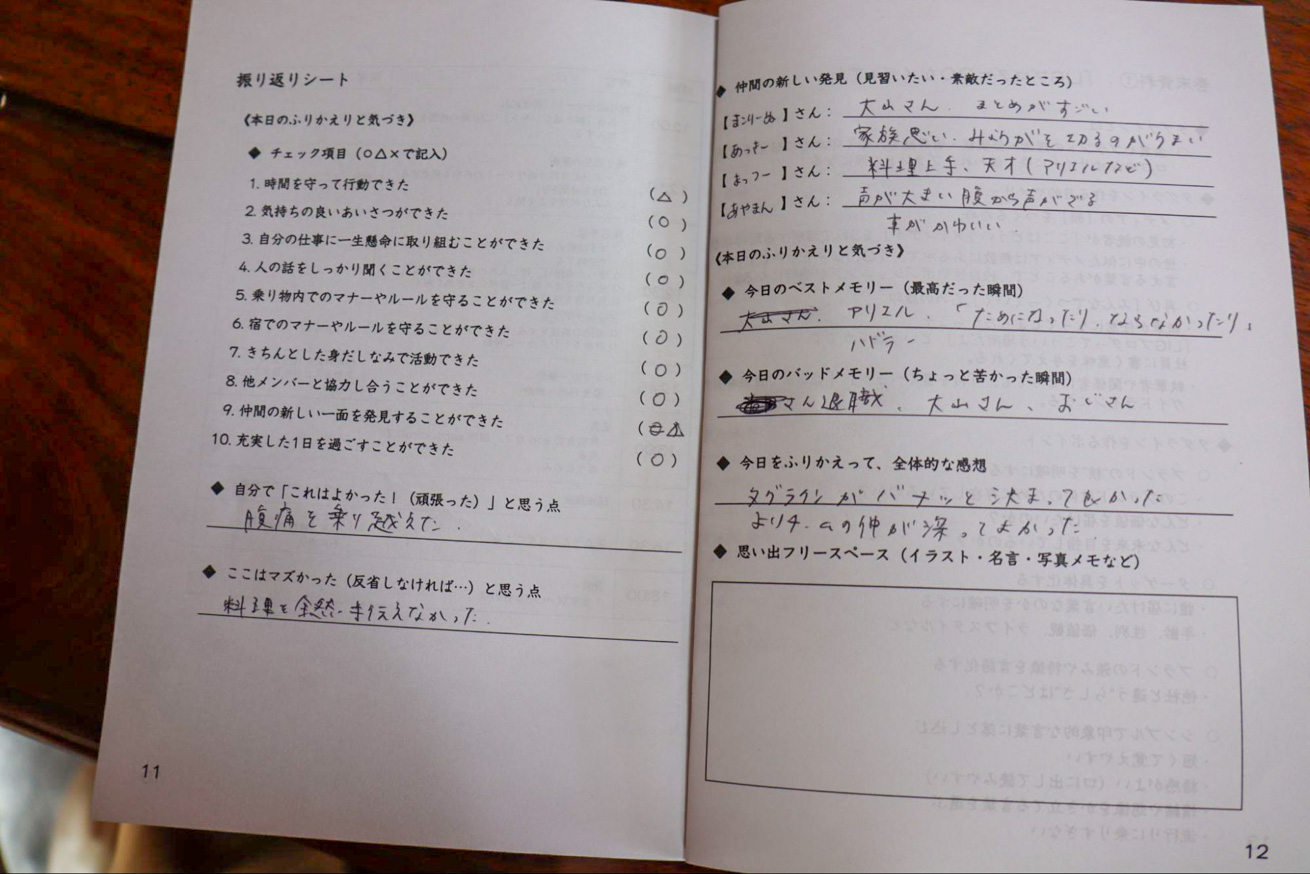 振り返りシート
《本日のふりかえりと気づき》
◆ チェック項目（○△×で記入）
1. 時間を守って行動できた （△）
2. 気持ちの良いあいさつができた （○）
3. 自分の仕事に一生懸命に取り組むことができた （○）
4. 人の話をしっかり聞くことができた （○）
5. 乗り物内でのマナーやルールを守ることができた （○）
6. 宿でのマナーやルールを守ることができた （○）
7. きちんとした身だしなみで活動できた （○）
8. 他メンバーと協力し合うことができた （○）
9. 仲間の新しい一面を発見することができた （△）
10. 充実した1日を過ごすことができた （○）
◆ 自分で「これはよかった！（頑張った）」と思う点
腹痛を乗り越えた.
◆ ここはマズかった（反省しなければ…）と思う点
料理を全然手伝えなかった.
11
◆ 仲間の新しい発見（見習いたい・素敵だったところ）
【まんりーぬ】さん： 大山さん、まとめがすごい
【あっきー】さん： 家族思い、みょうがを切るのがうまい
【よっつー】さん： 料理上手、天才（アリエルなど）
【あやまん】さん： 声が大きい 腹から声がでる
車がかわいい
《本日のふりかえりと気づき》
◆ 今日のベストメモリー（最高だった瞬間）
大山さん、アリエル、「ためになったり、ならなかったり」
ハドラー
◆ 今日のバッドメモリー（ちょっと苦かった瞬間）
さん退職、大山さん、おじさん
◆ 今日をふりかえって、全体的な感想
タグラインがバチッと決まって良かった
より4.aの仲が深ってよかった
◆ 思い出フリースペース（イラスト・名言・写真メモなど）
12